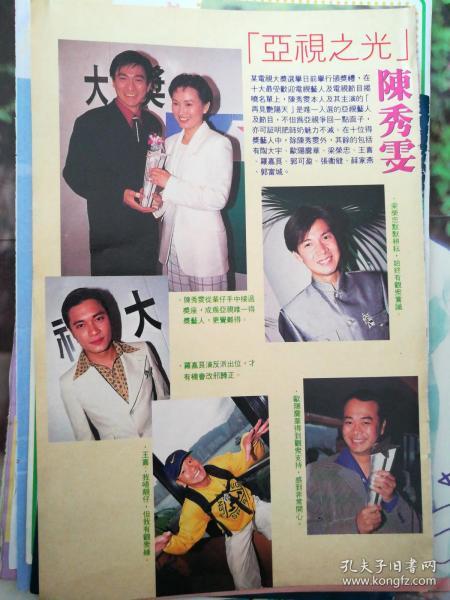 「亞視之光」
陳秀雯
某電視大獎選舉日前舉行頒獎禮，在
十大最受歡迎電視藝人及電視節目揭
曉名單上，陳秀雯本人及其主演的「
再見艷陽天」是唯一入選的亞視藝人
及節目，不但為亞視爭回一點面子，
亦可証明肥師奶魅力不減。在十位得
獎藝人中，除陳秀雯外，其餘的包括
有陶大宇、歐陽震華、梁榮忠、王喜
、羅嘉良、郭可盈、張衛健、薛家燕
、郭富城。
大獎
．梁榮忠默默耕耘，始終有觀眾賞識。
．陳秀雯從華仔手中接過
獎座，成為亞視唯一得
獎藝人，更覺難得。
視大
．羅嘉良演反派出位，才
有機會改邪歸正。
．歐陽震華得到觀眾支持，感到非常開心。
．王喜：我唔靚仔，但我有觀眾緣。
孔夫子旧书网
www.kongfz.com